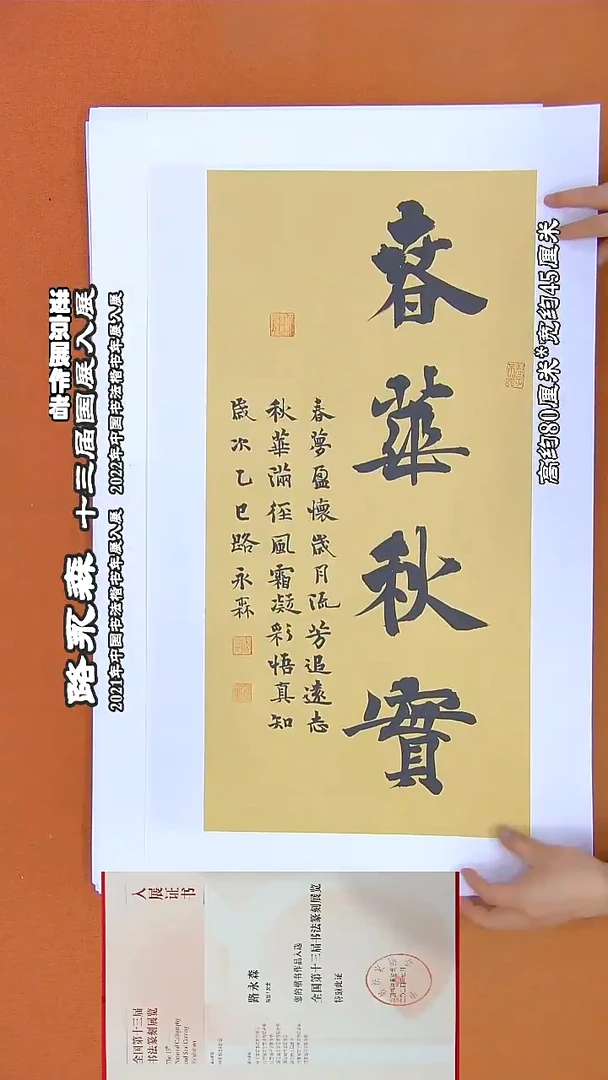 春華秋實
春夢盈懷歲月流芳追遠志
秋華滿徑風霜凝彩悟真知
歲次乙巳路永森
路永森 十三届国展入展
2021年中国书法楷书年展入展 2022年中国书法楷书年展入展
高约80厘米*宽约45厘米
入展证书
全国第十三届
书法篆刻展览
The 13th
National Calligraphy
and Seal Carving
Exhibition
路永森
您的楷书作品入选
全国第十三届书法篆刻展览
特颁此证